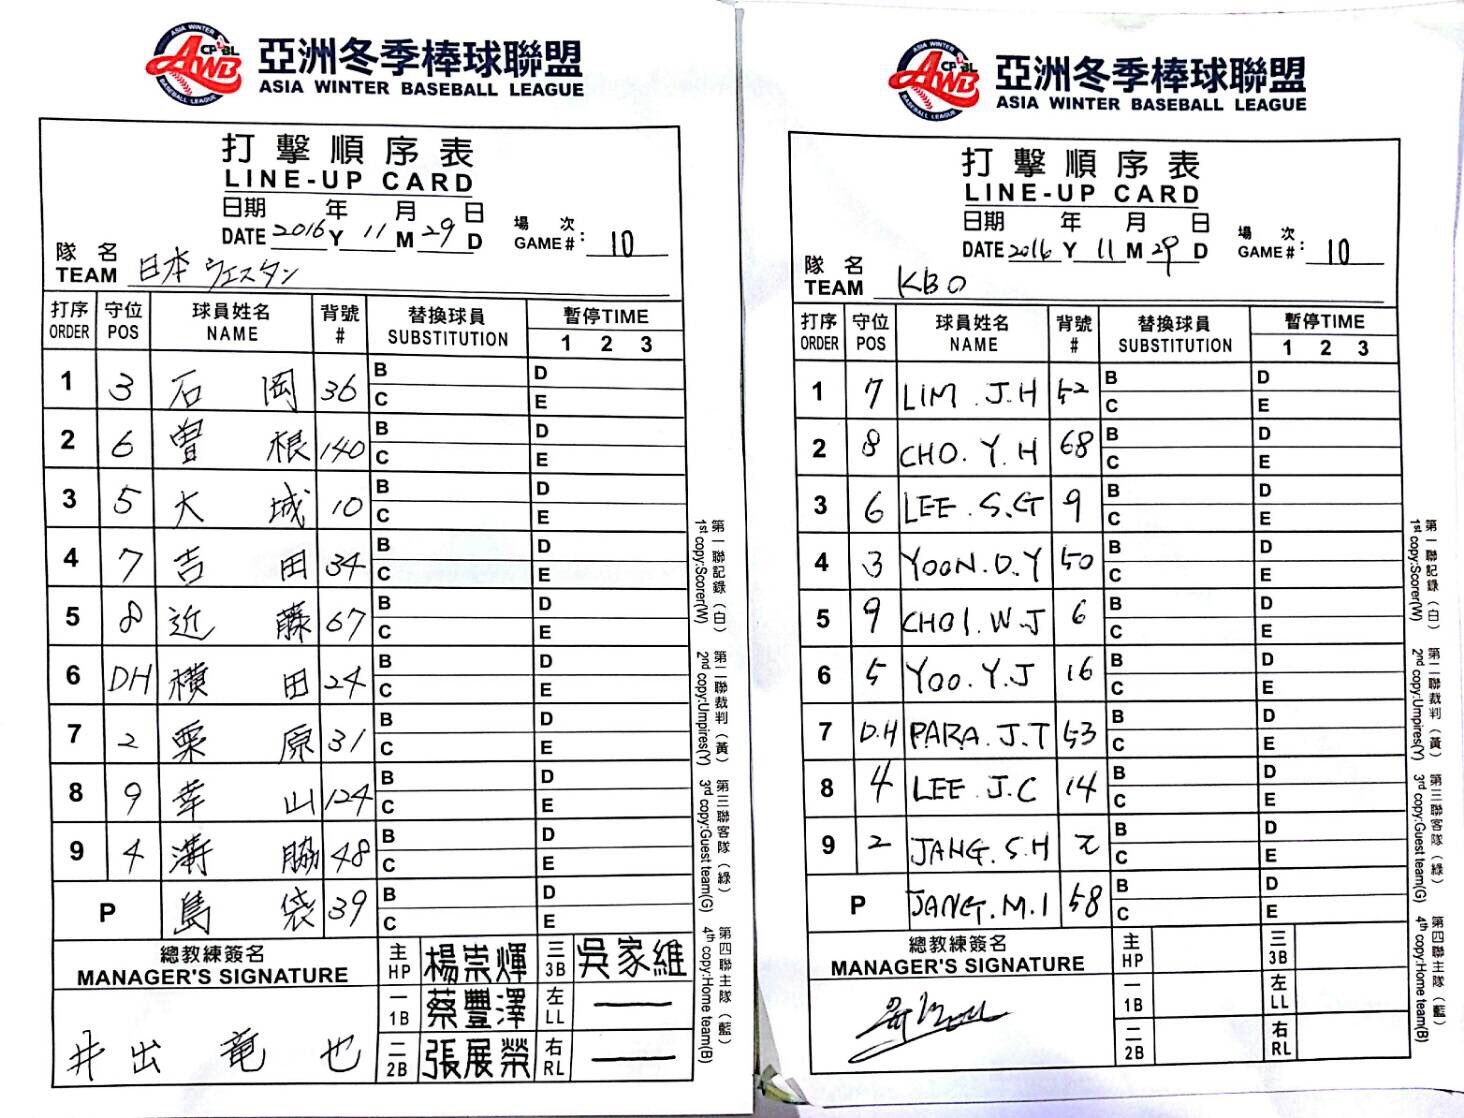 ASIA WINTER
CPBL
AWB
BASEBALL LEAGUE
亞洲冬季棒球聯盟
ASIA WINTER BASEBALL LEAGUE
打擊順序表
LINE-UP CARD
日期 年 月 日
DATE 2016 Y 11 M 29 D
場次
GAME#: 10
隊名
TEAM 日本ウエスタン
打序 守位 球員姓名 背號 替換球員 暫停TIME
ORDER POS NAME # SUBSTITUTION 1 2 3
1 3 石岡 36 B C D E
2 6 曽根 140 B C D E
3 5 大城 10 B C D E
4 7 吉田 34 B C D E
5 8 近藤 67 B C D E
6 DH 横田 24 B C D E
7 2 栗原 31 B C D E
8 9 幸山 124 B C D E
9 4 溝脇 48 B C D E
P 島袋 39 B C D E
總教練簽名
MANAGER'S SIGNATURE
井出竜也
主 HP 楊崇輝 三 3B 吳家維
一 1B 蔡豐澤 左 LL —
二 2B 張展榮 右 RL —
第一聯記錄(白)
1st copy:Scorer(W)
第二聯裁判(黃)
2nd copy:Umpires(Y)
第三聯客隊(綠)
3rd copy:Guest team(G)
第四聯主隊(藍)
4th copy:Home team(B)
ASIA WINTER
CPBL
AWB
BASEBALL LEAGUE
亞洲冬季棒球聯盟
ASIA WINTER BASEBALL LEAGUE
打擊順序表
LINE-UP CARD
日期 年 月 日
DATE 2016 Y 11 M 29 D
場次
GAME#: 10
隊名
TEAM KBO
打序 守位 球員姓名 背號 替換球員 暫停TIME
ORDER POS NAME # SUBSTITUTION 1 2 3
1 7 LIM.J.H 52 B C D E
2 8 CHO.Y.H 68 B C D E
3 6 LEE.S.G 9 B C D E
4 3 YOON.D.Y 50 B C D E
5 9 CHOI.W.J 6 B C D E
6 5 YOO.Y.J 16 B C D E
7 D.H PARA.J.T 53 B C D E
8 4 LEE.J.C 14 B C D E
9 2 JANG.S.H 2 B C D E
P JANG.M.I 58 B C D E
總教練簽名
MANAGER'S SIGNATURE
主 HP 三 3B
一 1B 左 LL
二 2B 右 RL
第一聯記錄(白)
1st copy:Scorer(W)
第二聯裁判(黃)
2nd copy:Umpires(Y)
第三聯客隊(綠)
3rd copy:Guest team(G)
第四聯主隊(藍)
4th copy:Home team(B)